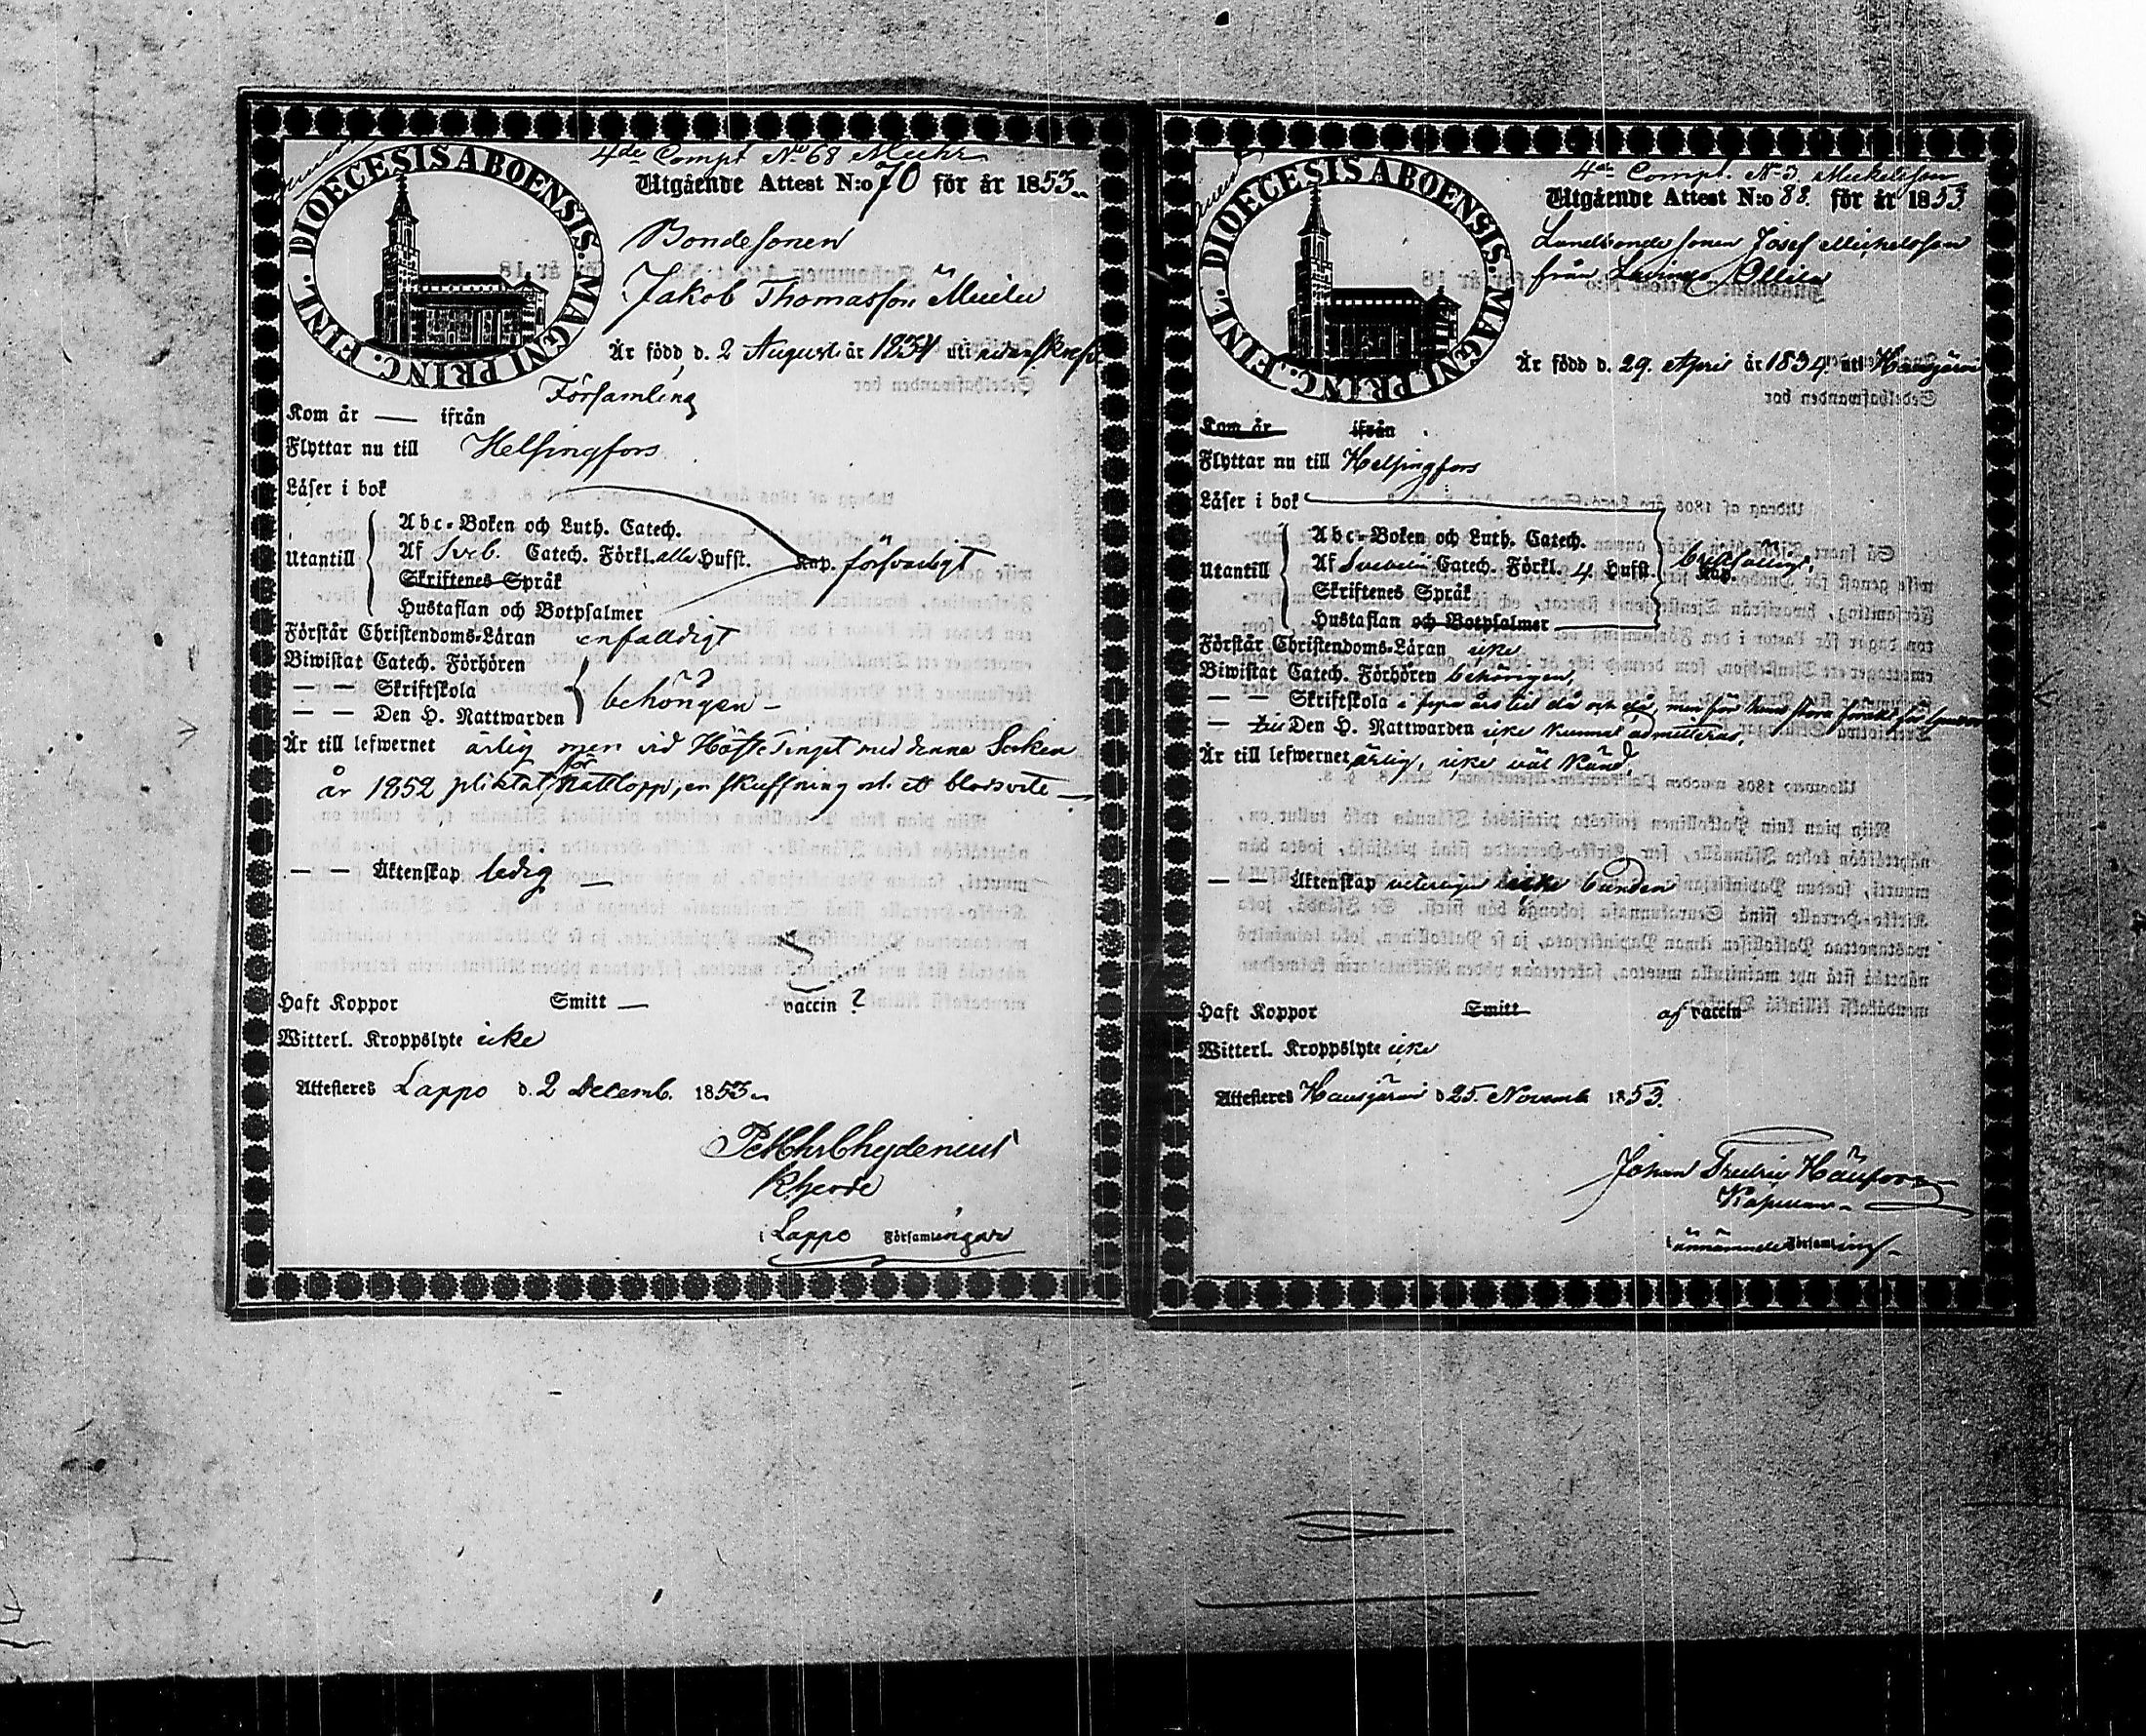 DIOECESIS ABOENSIS. MAGNI PRINC. FINL.
4de Compt No 68 Meehr
Utgående Attest N:o 70 för år 1853
Bondesonen
Jakob Thomasson
Är född d. 2 August år 1834 uti
Församling
Kom år — ifrån
Flyttar nu till Helsingfors
Läser i bok
Utantill
Abc-Boken och Luth. Catech.
Af Sveb. Catech. Förkl. alla Hufst. Kap. försvarligt
Skriftenes Språk
Hustaflan och Botpsalmer
Förstår Christendoms-Läran enfaldigt
Biwistat Catech. Förhören
— — Skriftskola behörigen
— — Den H. Nattwarden
Är till lefwernet ärlig men vid Höste Tinget med denna Socken
år 1852 pliktat för Nattlopp, en skuffning och ett blodvite
— — Äktenskap ledig —
Haft Koppor Smitt — vaccin ?
Witterl. Kroppslyte icke
Attesteras Lappo d. 2 Decemb. 1853
Chydenius
Kherde
i Lappo Församlingar
DIOECESIS ABOENSIS. MAGNI PRINC. FINL.
4de Compt. No 3 Mickelsson
Utgående Attest N:o 88. för år 1853
Landbonde sonen Josef Michelsson
från Ollila
Är född d. 29 April år 1834 uti Hausjärvi
Kom år ifrån
Flyttar nu till Helsingfors
Läser i bok
Utantill
Abc-Boken och Luth. Catech.
Af Svebelii Catech. Förkl. 4 Hufst. Kap.
Skriftenes Språk
Hustaflan och Botpsalmer
Förstår Christendoms-Läran icke
Biwistat Catech. Förhören behörigen,
— — Skriftskola i års tid då och då, men för hans stora förakt för
— till Den H. Nattwarden icke kunnat admitteras,
Är till lefwernet ärlig, icke väl känd,
— — Äktenskap veterligen icke bunden
Haft Koppor Smitt af vaccin
Witterl. Kroppslyte icke
Attesteras Hausjärvi d 25. Novemb 1853.
Johan Fredric
Kapellan
i ännämnde Församling